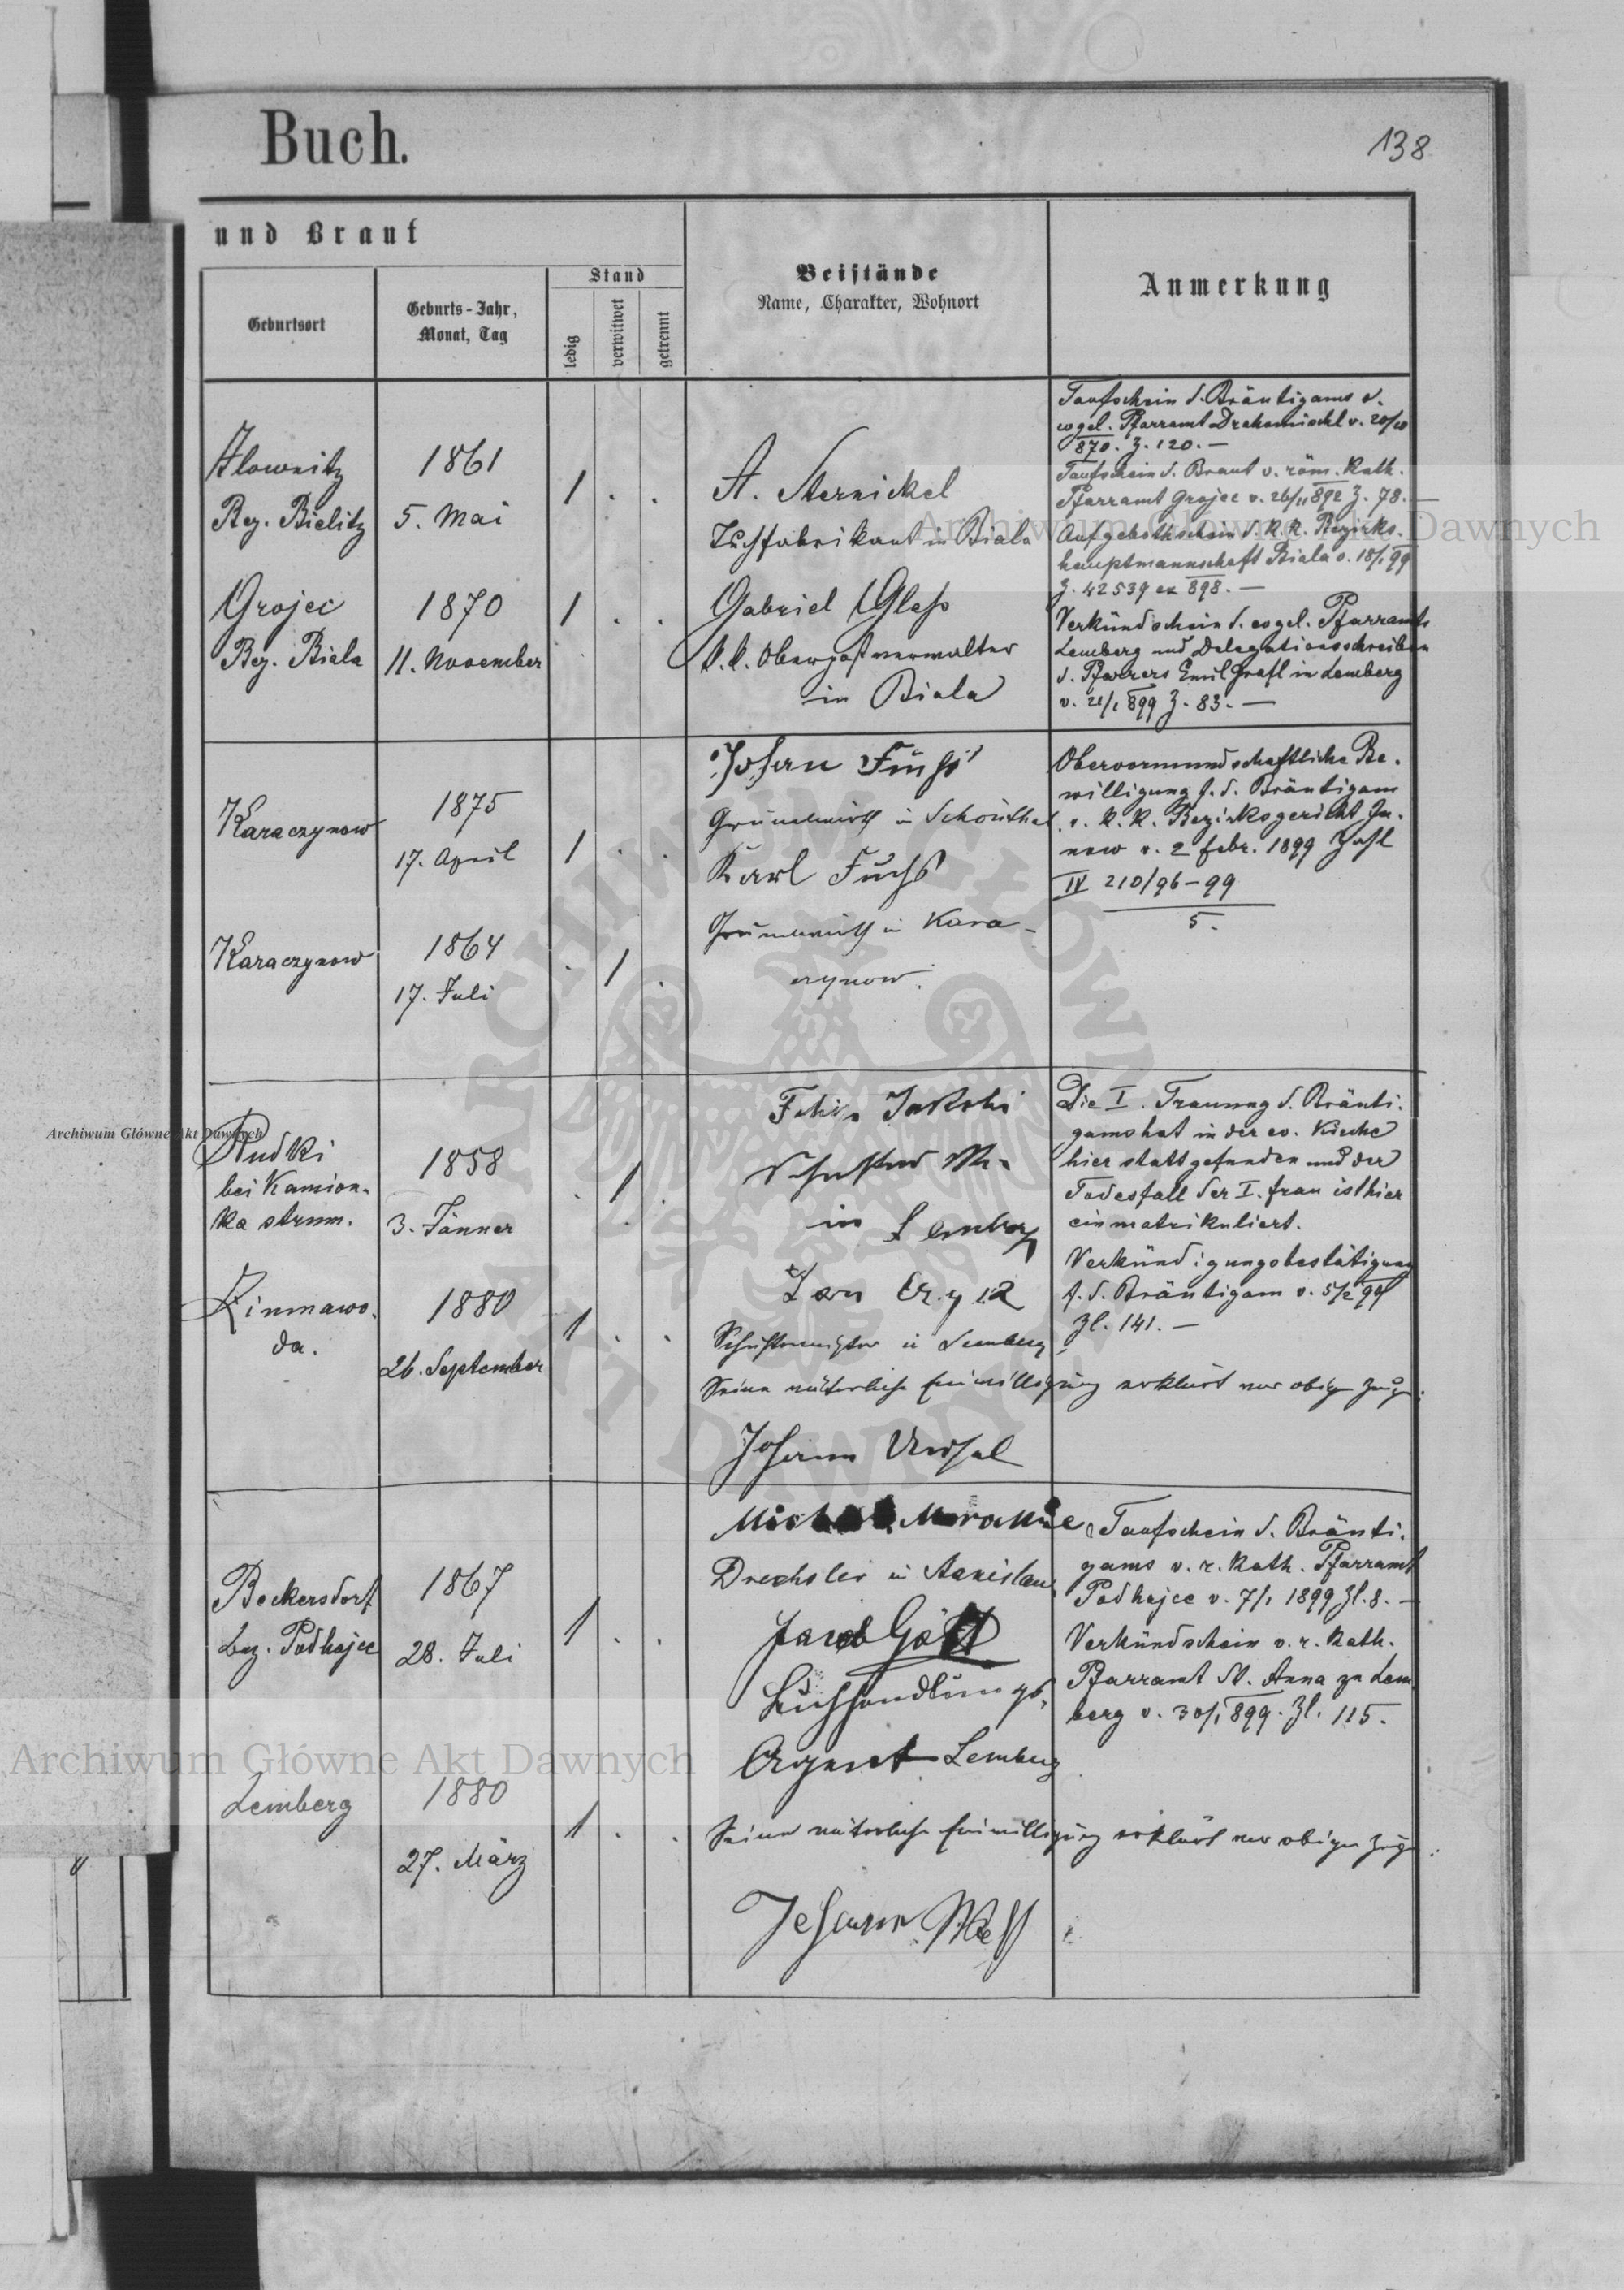 Buch.
138
und Braut
Geburtsort
Geburts-Jahr,
Monat, Tag
Stand
ledig
verwitwet
getrennt
Beistände
Name, Charakter, Wohnort
Anmerkung
Ilownitz
Bez. Bielitz
1861
5. Mai
1 . .
A. Sternickel
Tuchfabrikant in Biala
Taufschein d. Bräutigams v.
evgel. Pfarramt
870. Z. 120. —
Taufschein d. Braut v. röm. Kath.
Pfarramt Grojec v. 26/11 892 Z. 78. —
Aufgebothschein d. K. K. Bezirks-
hauptmannschaft Biala v. 18/1 99
Z. 42539 ex 898. —
Grojec
Bez. Biala
1870
11. November
1 . .
Gabriel Gless
k. k. Oberpostverwalter
in Biala
Verkündschein d. evgel. Pfarramts
Lemberg und Delegationsschreiben
d. Pfarrers Emil Grafl in Lemberg
v. 21/1 899 Z. 83. —
Karaczynow
1875
17. April
1 . .
Johan Fuchs
Grundwirth in Schönthal
Karl Fuchs
Grundwirth in Kara-
czynow.
Obervormundschaftliche Be-
willigung f. d. Bräutigam
v. K. K. Bezirksgericht Ja-
now v. 2 Febr. 1899 Zahl
IV 210/96-99
5.
Karaczynow
1864
17. Juli
. 1 .
Rudki
bei Kamion-
ka strum.
1858
3. Jänner
. 1 .
Jakobi
in Lemberg
Jan
Schustermeister in Lemberg
Die I. Trauung d. Bräuti-
gams hat in der ev. Kirche
hier stattgefunden und der
Todesfall der I. Frau ist hier
einmatrikuliert.
Verkündigungsbestätigung
f. d. Bräutigam v. 5/2 99
Zl. 141. —
Zimnawo-
da.
1880
26. September
1 . .
Seine väterliche Einwilligung erklärt vor obigen Zeugen:
Johann
Drechsler in Stanislau
Jacob
Agent Lemberg
Beckersdorf
Bez. Podhajce
1867
28. Juli
1 . .
Taufschein d. Bräuti-
gams v. r. Kath. Pfarramt
Podhajce v. 7/1 1899 Zl. 8. —
Verkündschein v. r. Kath.
Pfarramt St. Anna zu Lem
berg v. 30/1 899. Zl. 115.
Lemberg
1880
27. März
1 . .
Seine väterliche Einwilligung erklärt vor obigen Zeugen:
Johann
Archiwum Główne Akt Dawnych
Archiwum Główne Akt Dawnych
Archiwum Główne Akt Dawnych
ARCHIWUM GŁÓWNE AKT DAWNYCH